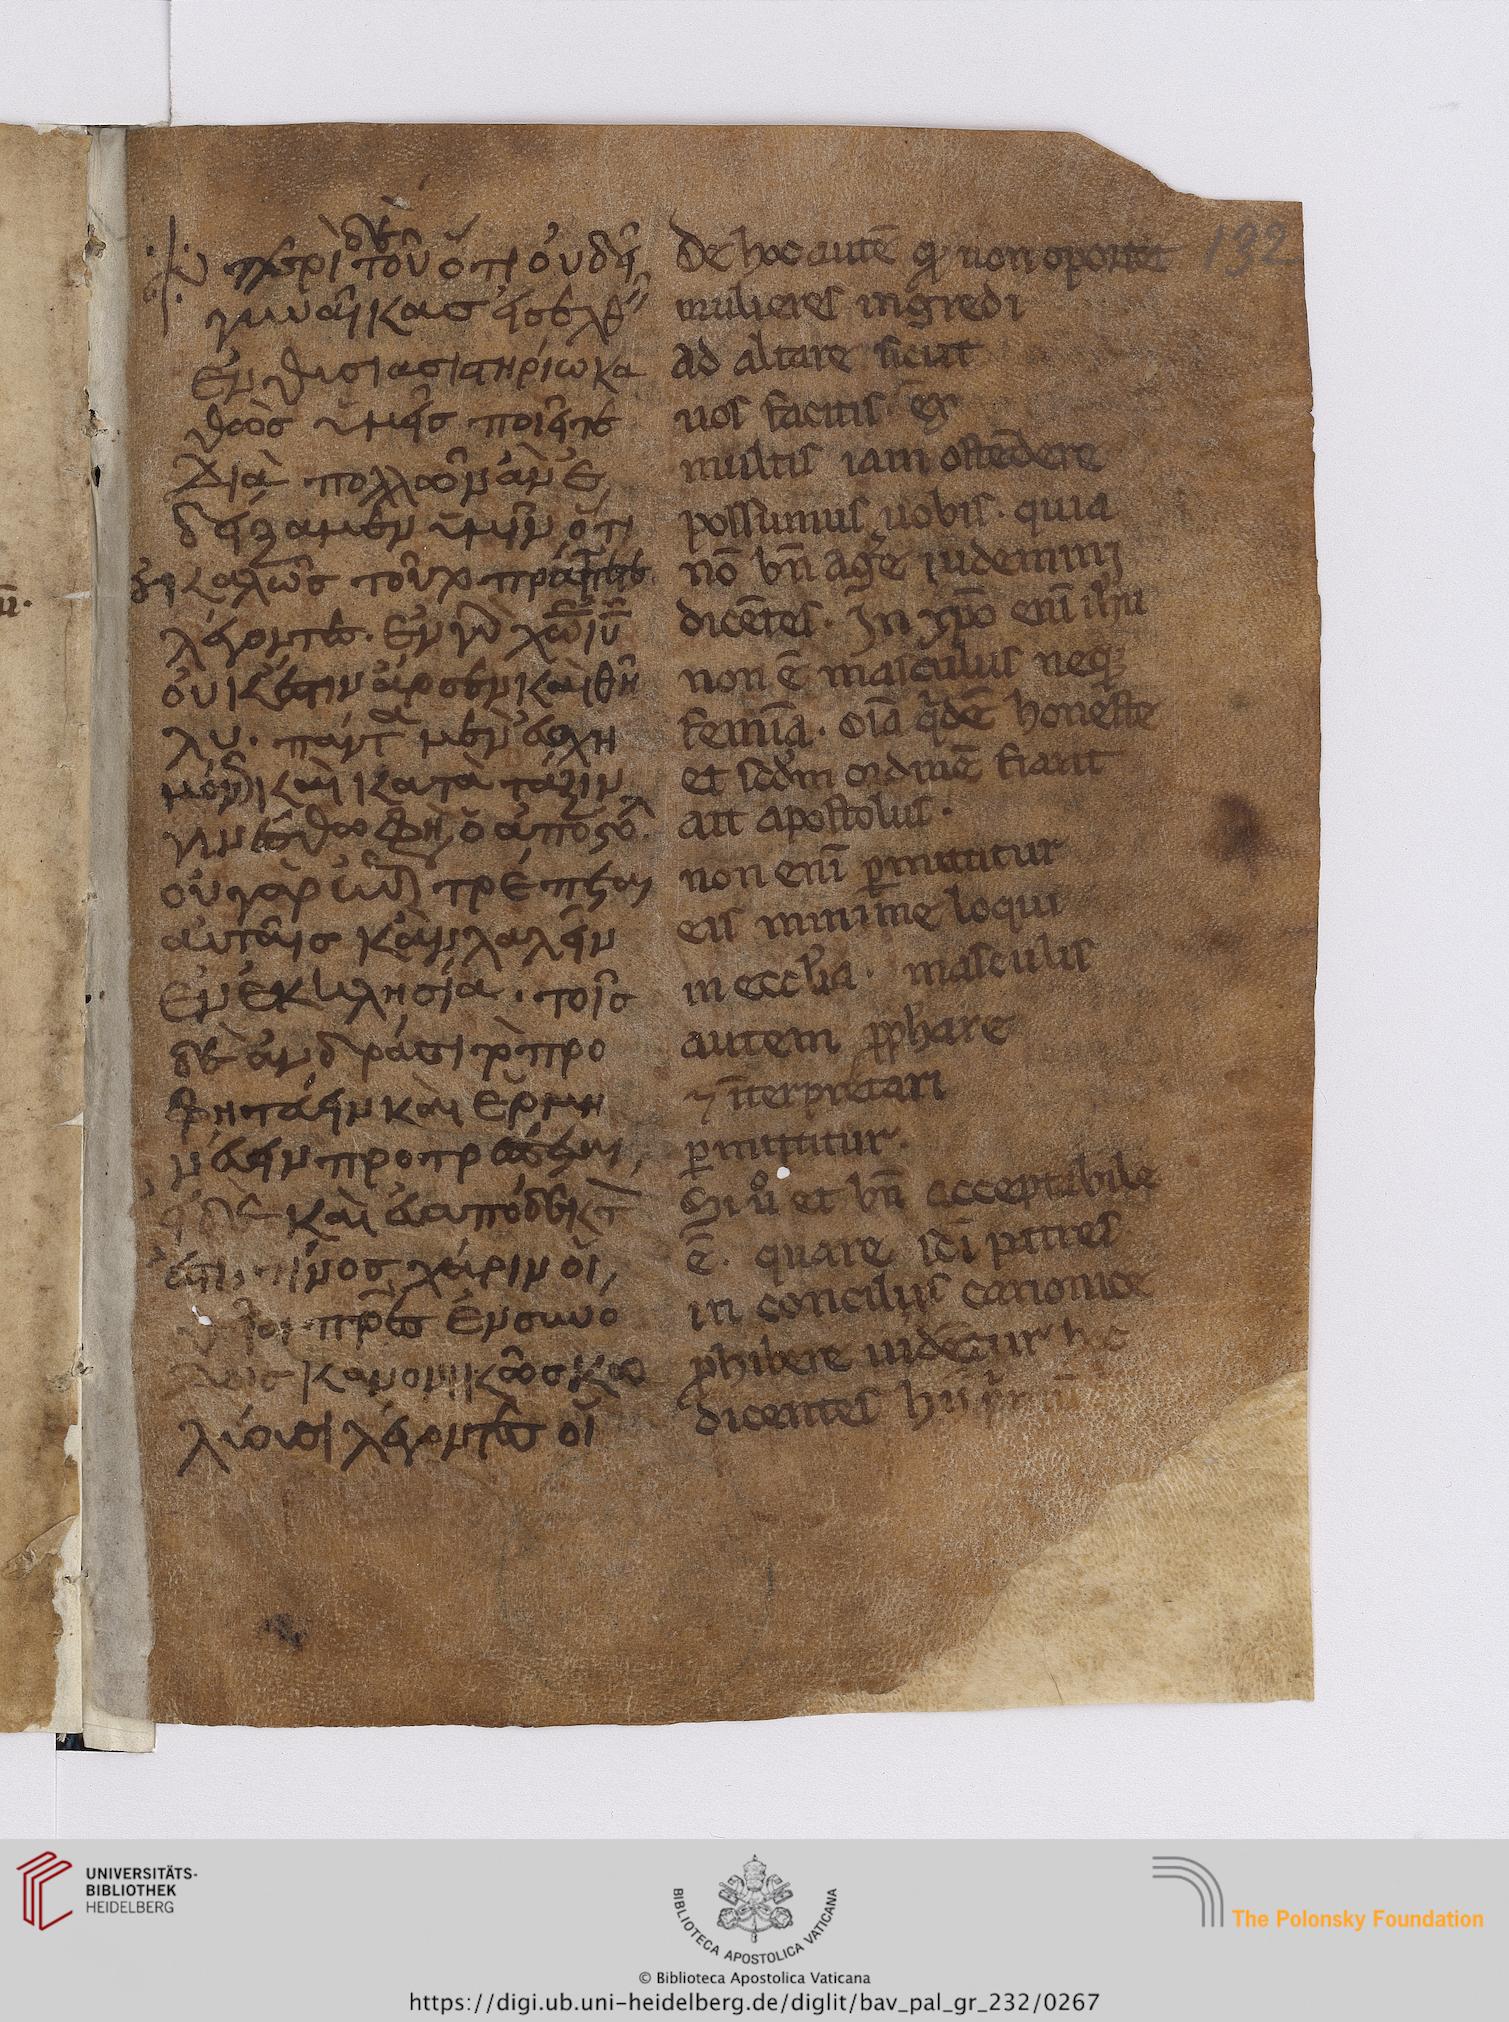 περὶ δὲ τοῦ ὅτι οὐ δεῖ
γυναῖκας
ἐν θυσιαστηρίω κα
θὼς ὑμεῖς ποιεῖτε
Διὰ πολλῶν ἂν ἐ
δείξαμεν ὑμῖν ὅτι
καλῶς τοῦτο
λέγοντες. Ἐν γὰρ χω ιυ
οὐκ ἔστιν ἄρσεν καὶ θῆ
λυ. πάντα μὲν εὐσχη
μόνως καὶ κατὰ τάξιν
ὁ ἀπόστολ
οὐ γὰρ
αὐταῖς κἂν λαλεῖν
ἐν ἐκκλησία. τοῖς
δὲ ἀνδράσι προ
φητεύειν καὶ ἑρμη
νεύειν
καὶ
ἐστι, τίνος χάριν οἱ
πρες ἐν συνό
δοις κανονικῶς κω
λύουσι λέγοντες οἱ
De hoc autē ꝙ non oportet 132
mulieres ingredi
ad altare sicut
uos facitis. ex
multis iam ostēdere
possumus uobis. quia
nō bn̄ agere uidemini
dicētes. In xp̄o enī ih̄u
non ē masculus neq;
femīa. oīa qdē honeste
et scdm ordinē fiant
ait apostolus.
non enī ꝑmittitur
eis minime loqui
in eccl̄ia. masculis
autem ꝓphare
⁊ īterpretari
ꝑmittitur.
Si u° et bn̄ acceptabile
ē. quare sc̄i patres
in conciliis canonice
ꝓhibere uidētur hec
dicentes
UNIVERSITÄTS-
BIBLIOTHEK
HEIDELBERG
BIBLIOTECA APOSTOLICA VATICANA
The Polonsky Foundation
© Biblioteca Apostolica Vaticana
https://digi.ub.uni-heidelberg.de/diglit/bav_pal_gr_232/0267